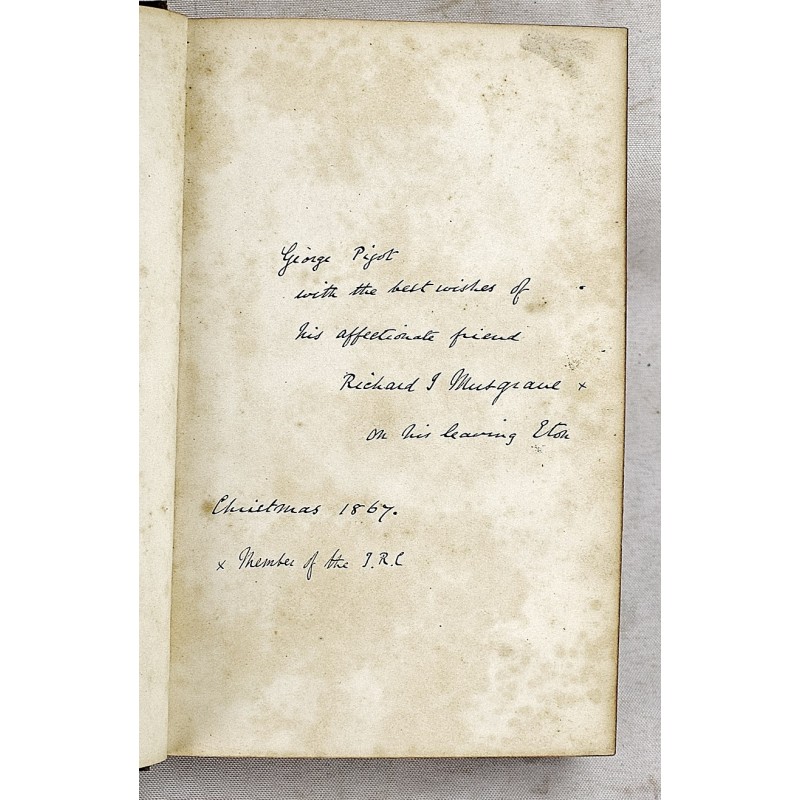 George Pigot
with the best wishes of
his affectionate friend
Richard J Musgrave x
on his leaving Eton
Christmas 1867.
x Member of the J.R.C